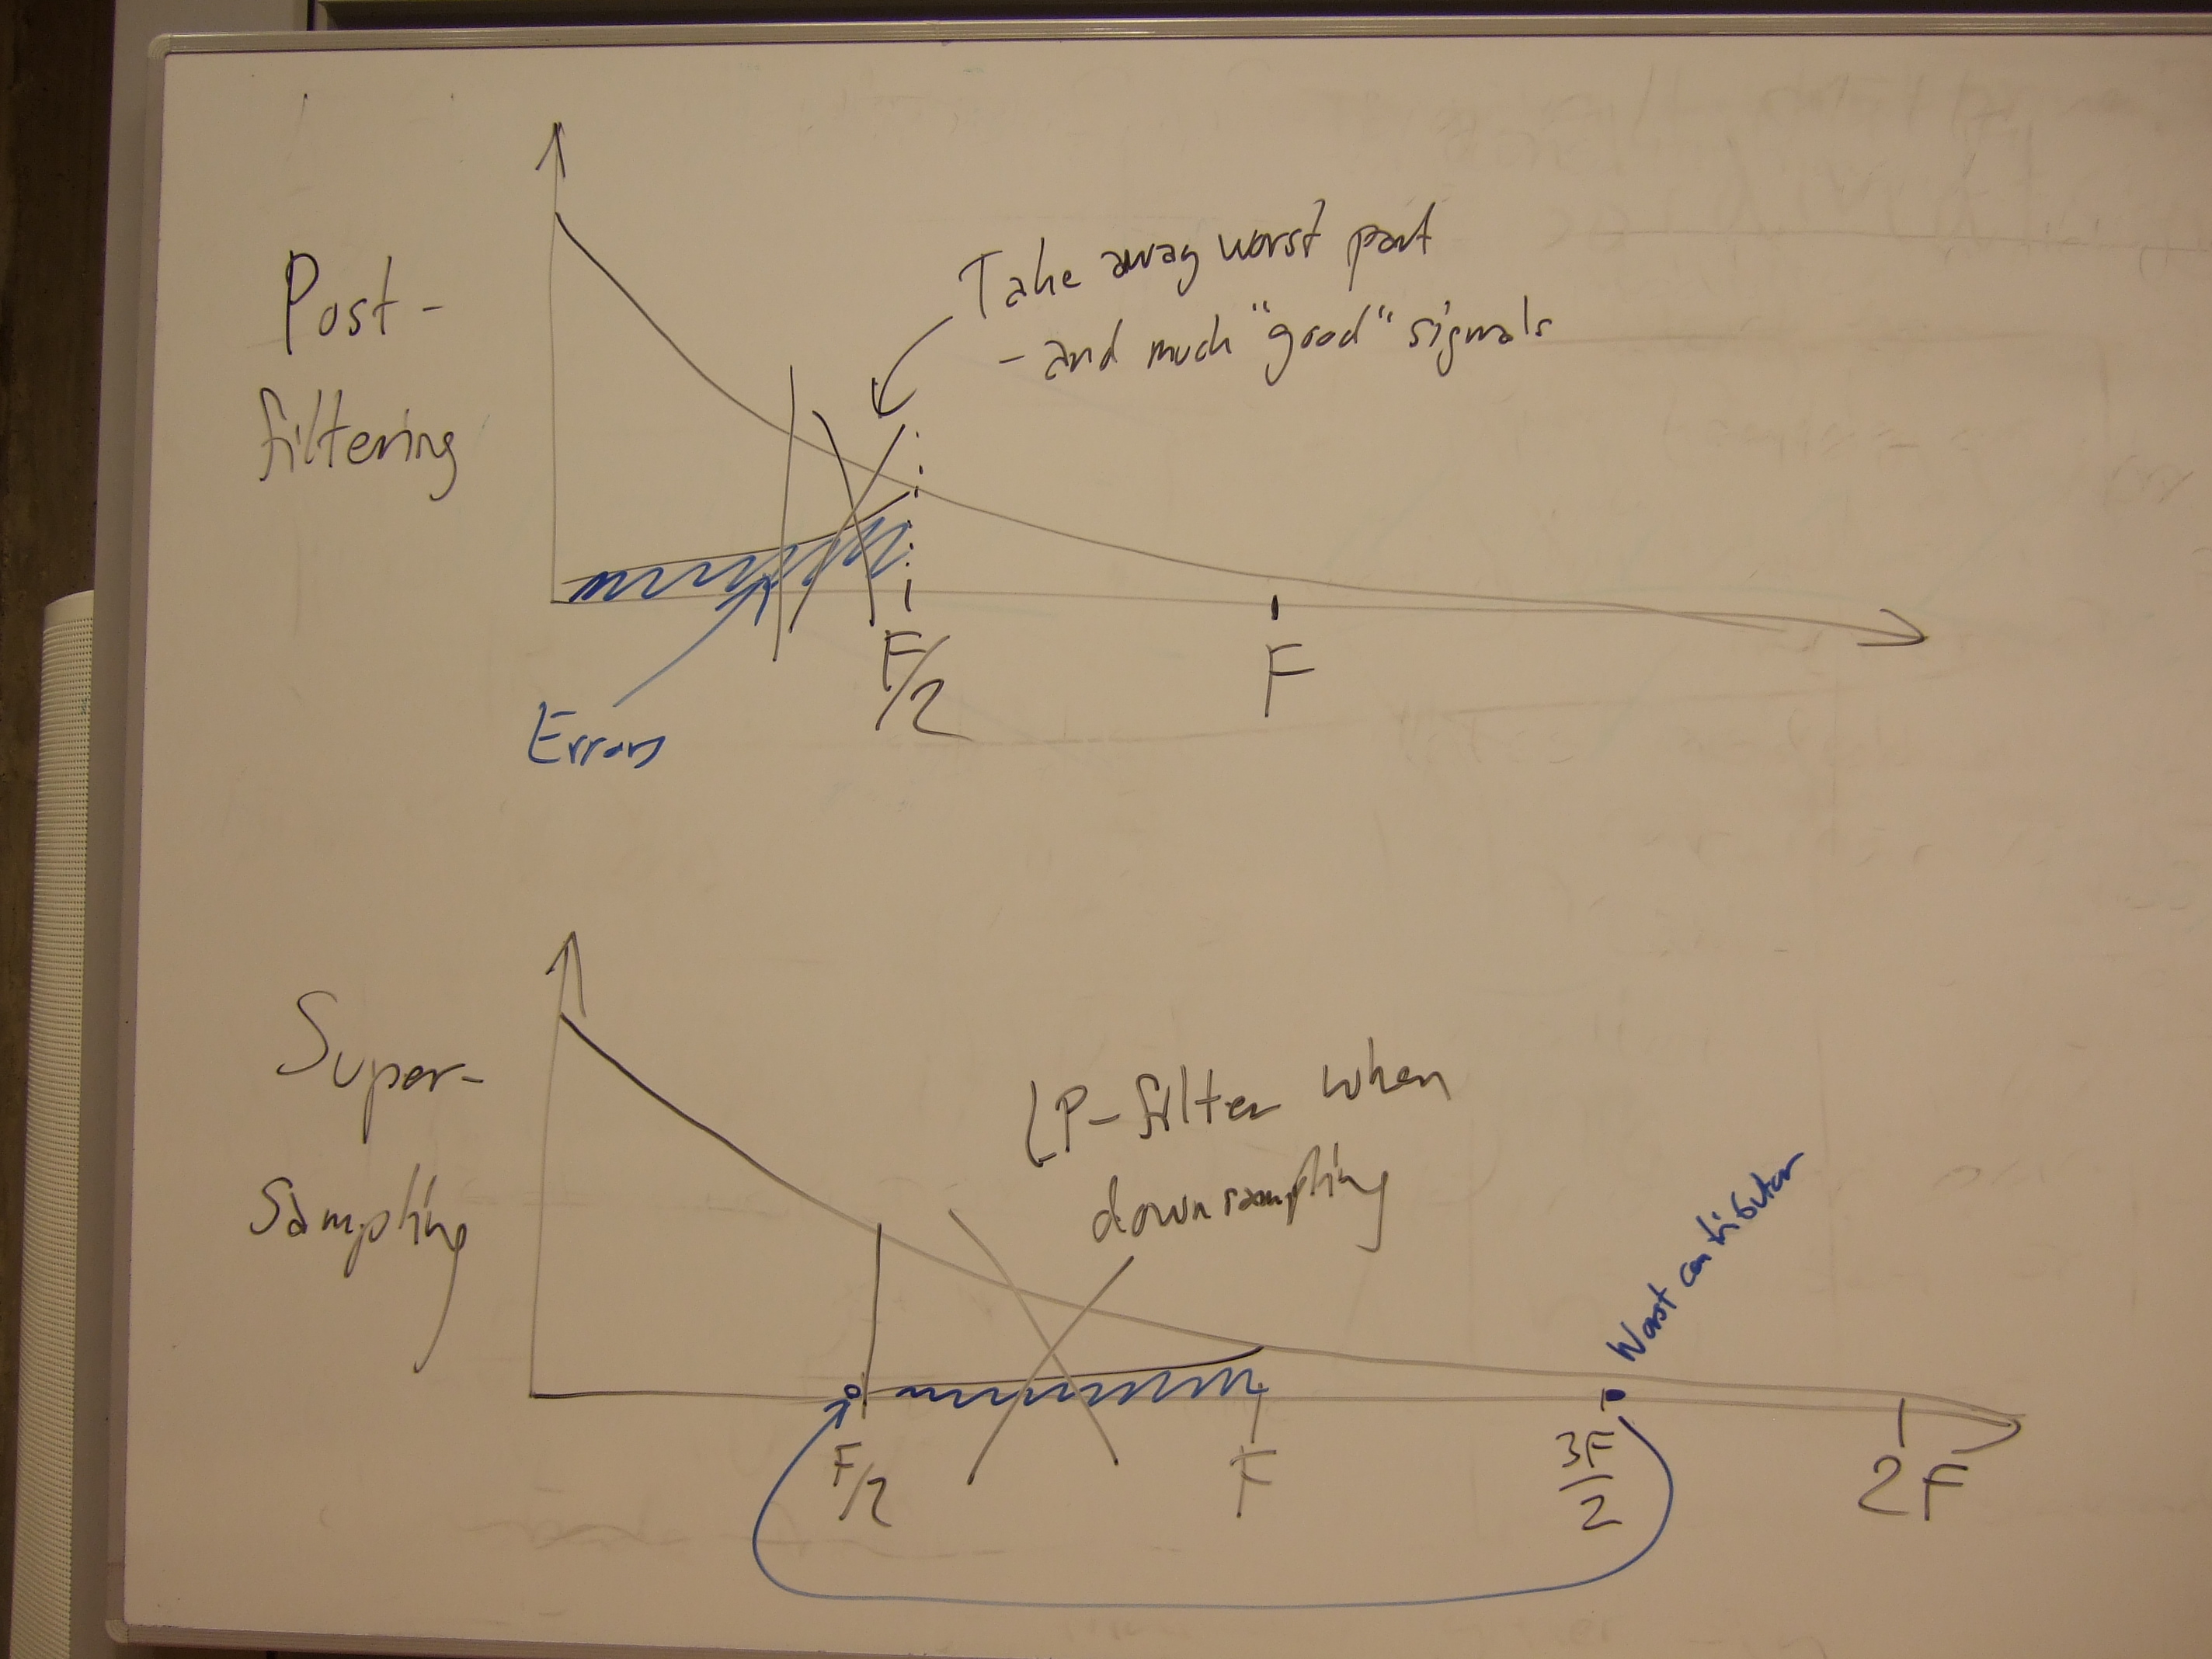 Post-
filtering
Take away worst part
- and much "good" signals
F/2
F
Errors
Super-
Sampling
LP-filter when
downsampling
Worst contributor
F/2
F
3F
2
2F